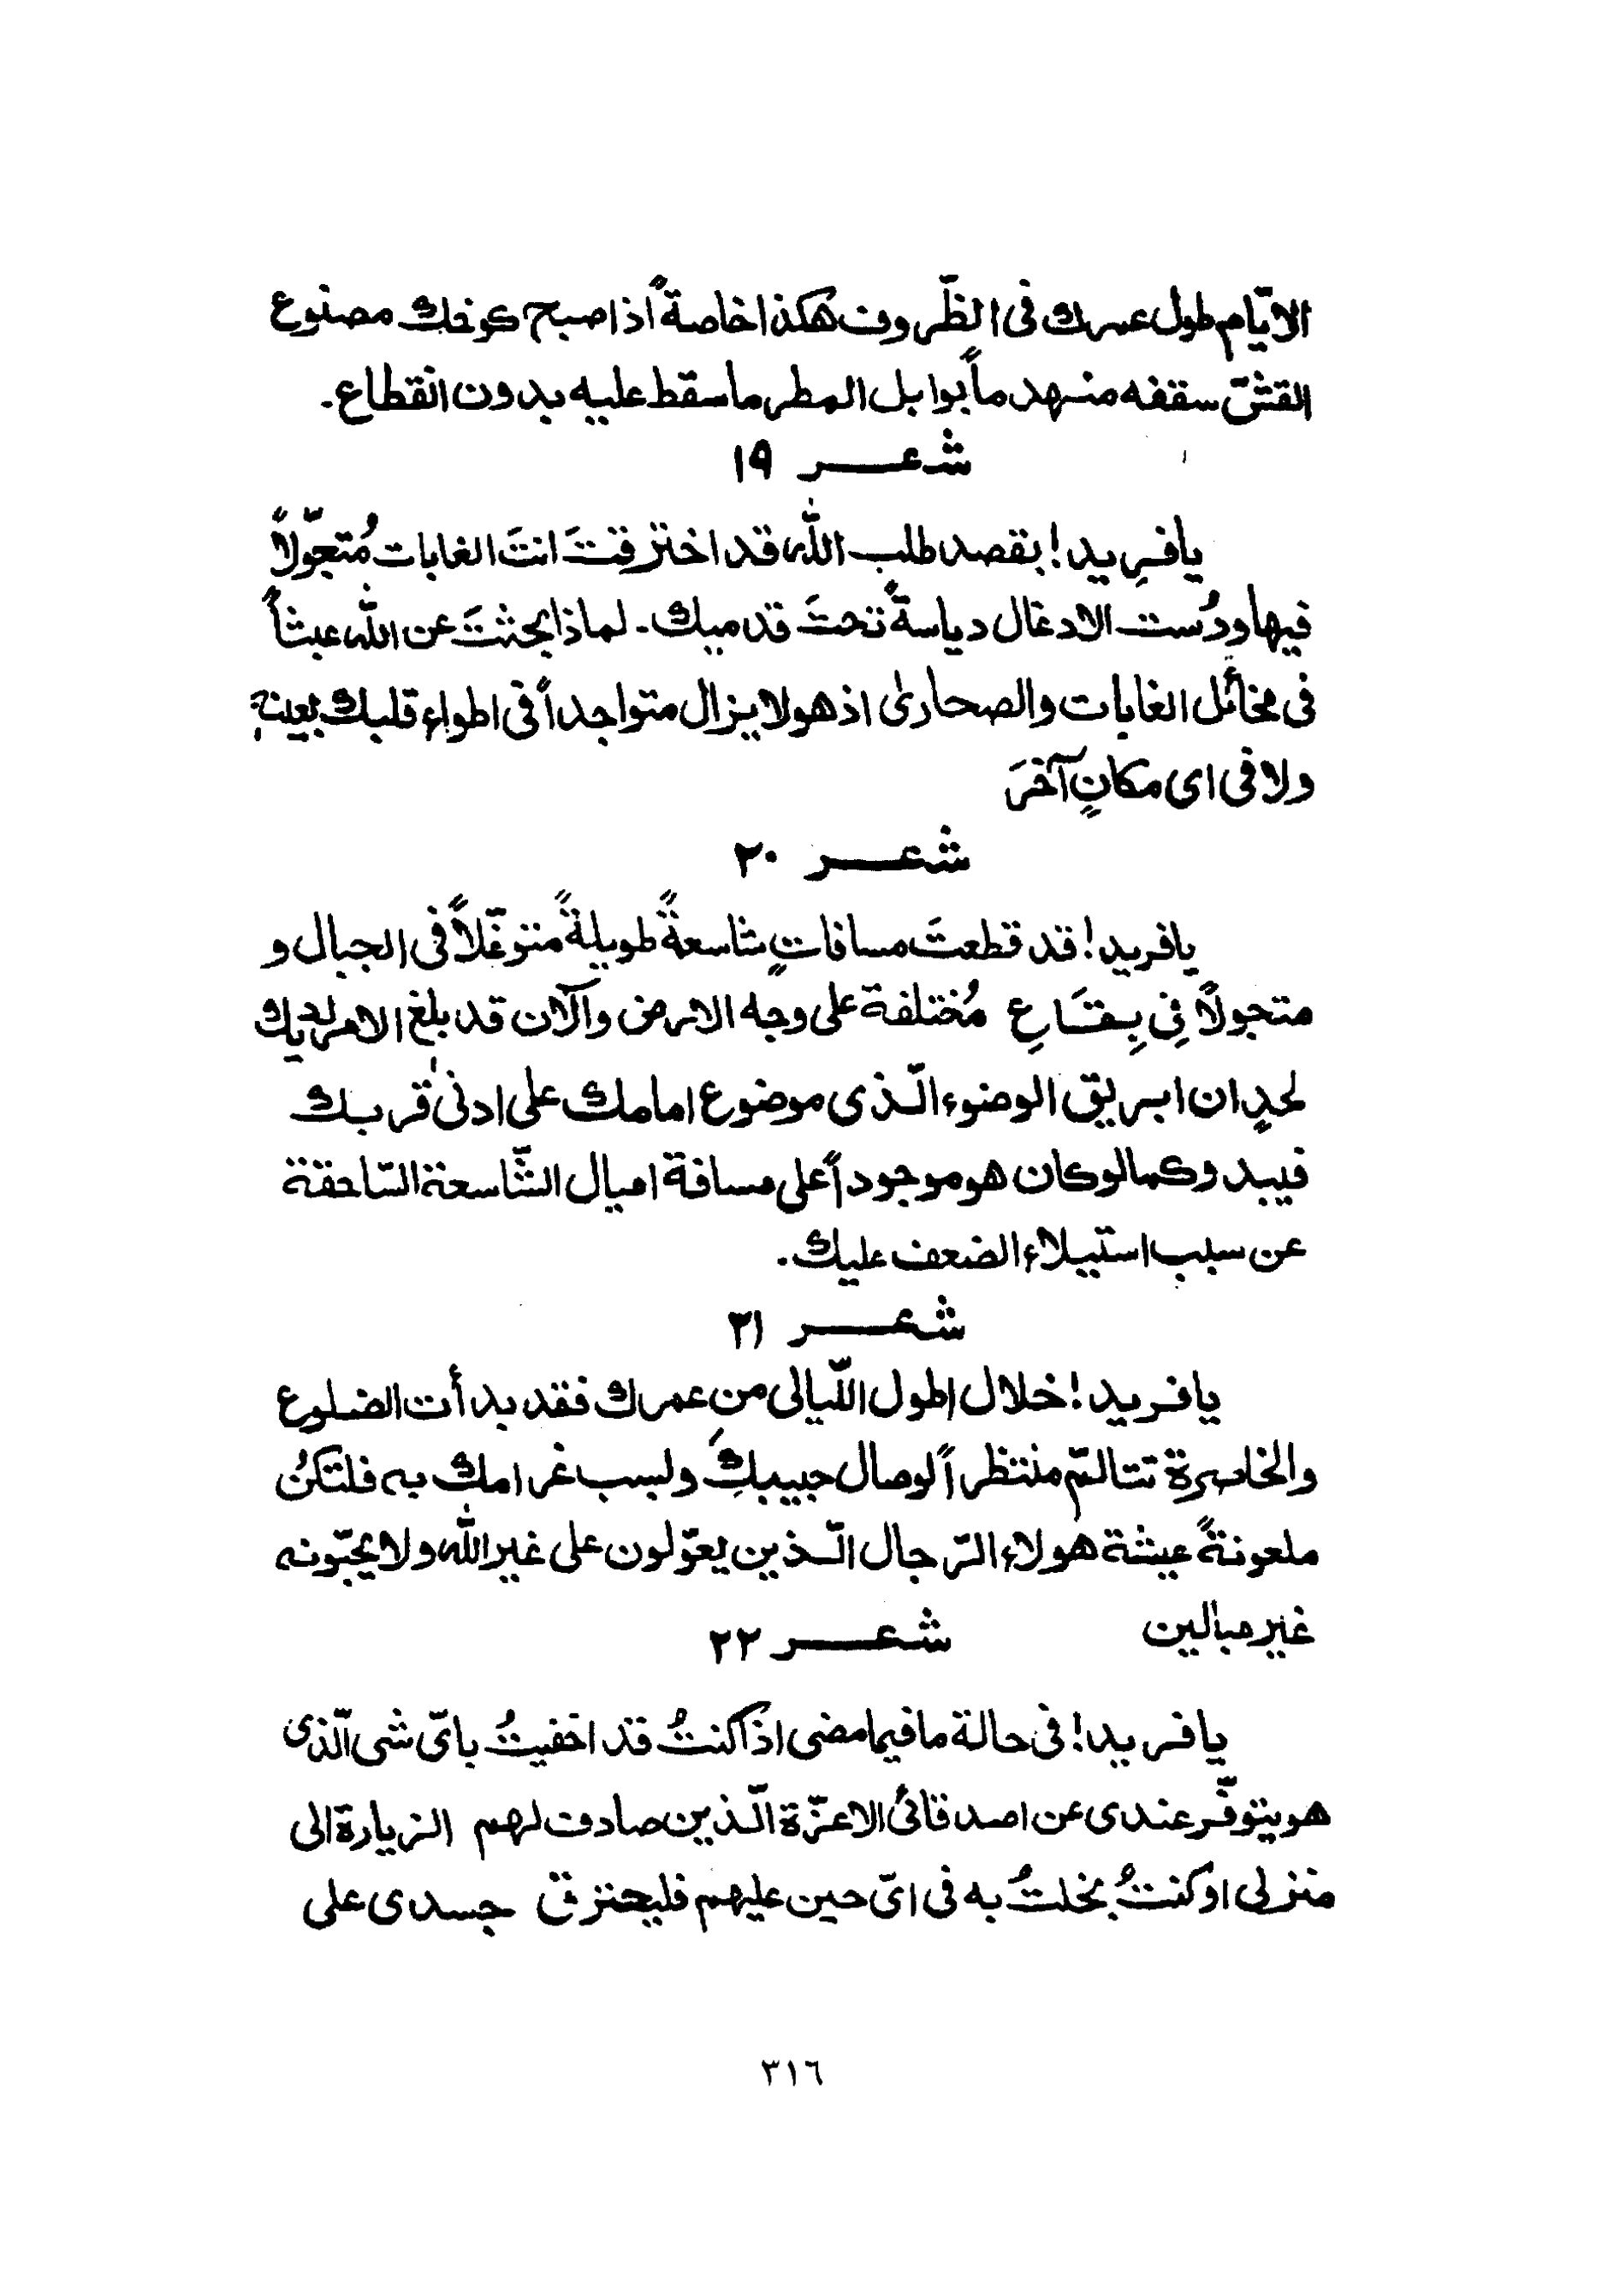 الايّام طول عمرك فى الظّروف هكذا خاصةً اذا صبح كوخك مصنوع
القشّ سقفه منهدماً بوابل المطر ما سقط عليه بدون انقطاع.
شعر ١٩
يا فريد! بقصد طلب الله قد اخترقتَ انتَ الغابات مُتجوّلاً
فيها ودُست الادغال دياسةً تحتَ قدميك. لماذا بحثتَ عن الله عبثاً
فى خمائل الغابات والصحارىٰ اذ هو لا يزال متواجداً فى اطواء قلبك بعينهٖ
ولا فى اى مكانٍ آخرَ
شعر ٢٠
يا فريد! قد قطعتَ مسافاتٍ شاسعةً طويلةً متوغّلاً فى الجبال و
متجولاً فِى بِقَاعِ مُختلفة على وجه الارض وآلان قد بلغ الامر لديك
لحدٍ ان ابريق الوضوء الّذى موضوع امامك على ادنىٰ قربك
فيبدو كما لو كان هو موجوداً على مسافة اميال الشّاسعة السّاحقة
عن سبب استيلاء الضعف عليك.
شعر ٢١
يا فريد! خلال اطول اللّيالى من عمرك فقد بدأت الضلوع
والخاصرة تتالّم منتظراً لوصال حبيبكِ ولسبب غرامك به فلتكنُ
ملعونةً عيشة هولاء الرّجال الّذين يعوّلون على غير الله ولا يحبّونه
غير مبالين
شعر ٢٢
يا فريد! فى حالة ما فيما مضى اذا كنتُ قد اخفيتُ باىّ شى الّذى
هو يتوفّر عندى عن اصدقائى الاعزّة الّذين صادف لهم الزيارة الى
منزلى او كنتُ بخلتُ به فى اىّ حين عليهم فليحترق جسدى على
٣١٦